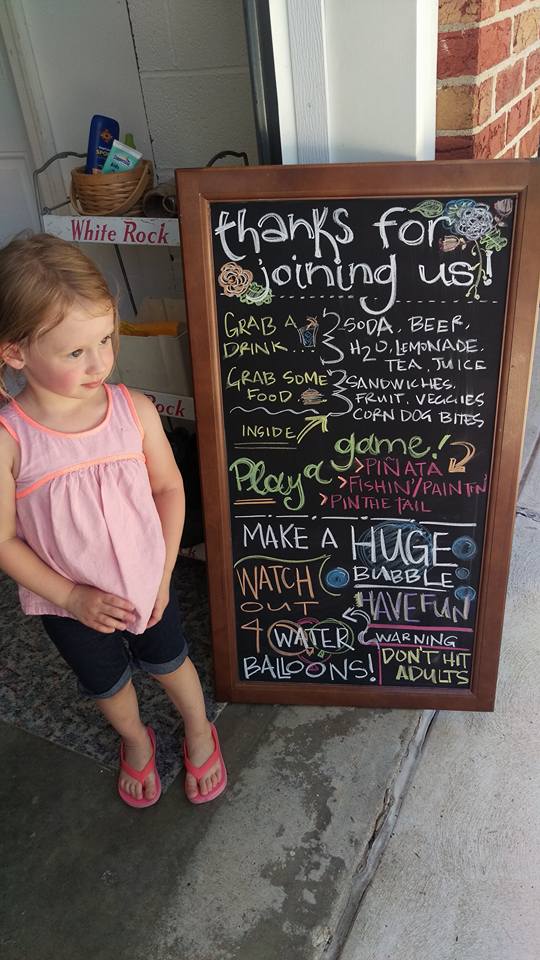 White Rock
Rock
SPORT
thanks for
joining us!
GRAB A
DRINK...
SODA, BEER,
H2O, LEMONADE,
TEA, JUICE
GRAB SOME
FOOD
SANDWICHES,
FRUIT, VEGGIES
CORN DOG BITES
INSIDE
Play a game!
> PIÑATA
> FISHIN'/PAINTIN'
> PIN THE TAIL
MAKE A HUGE
BUBBLE
WATCH
OUT
4 WATER
BALLOONS!
HAVE FUN
WARNING
DON'T HIT
ADULTS